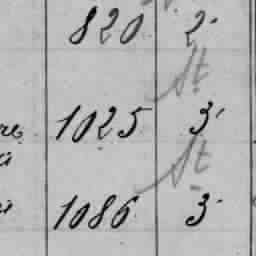 820 2
St
1025 3
St
1086 3